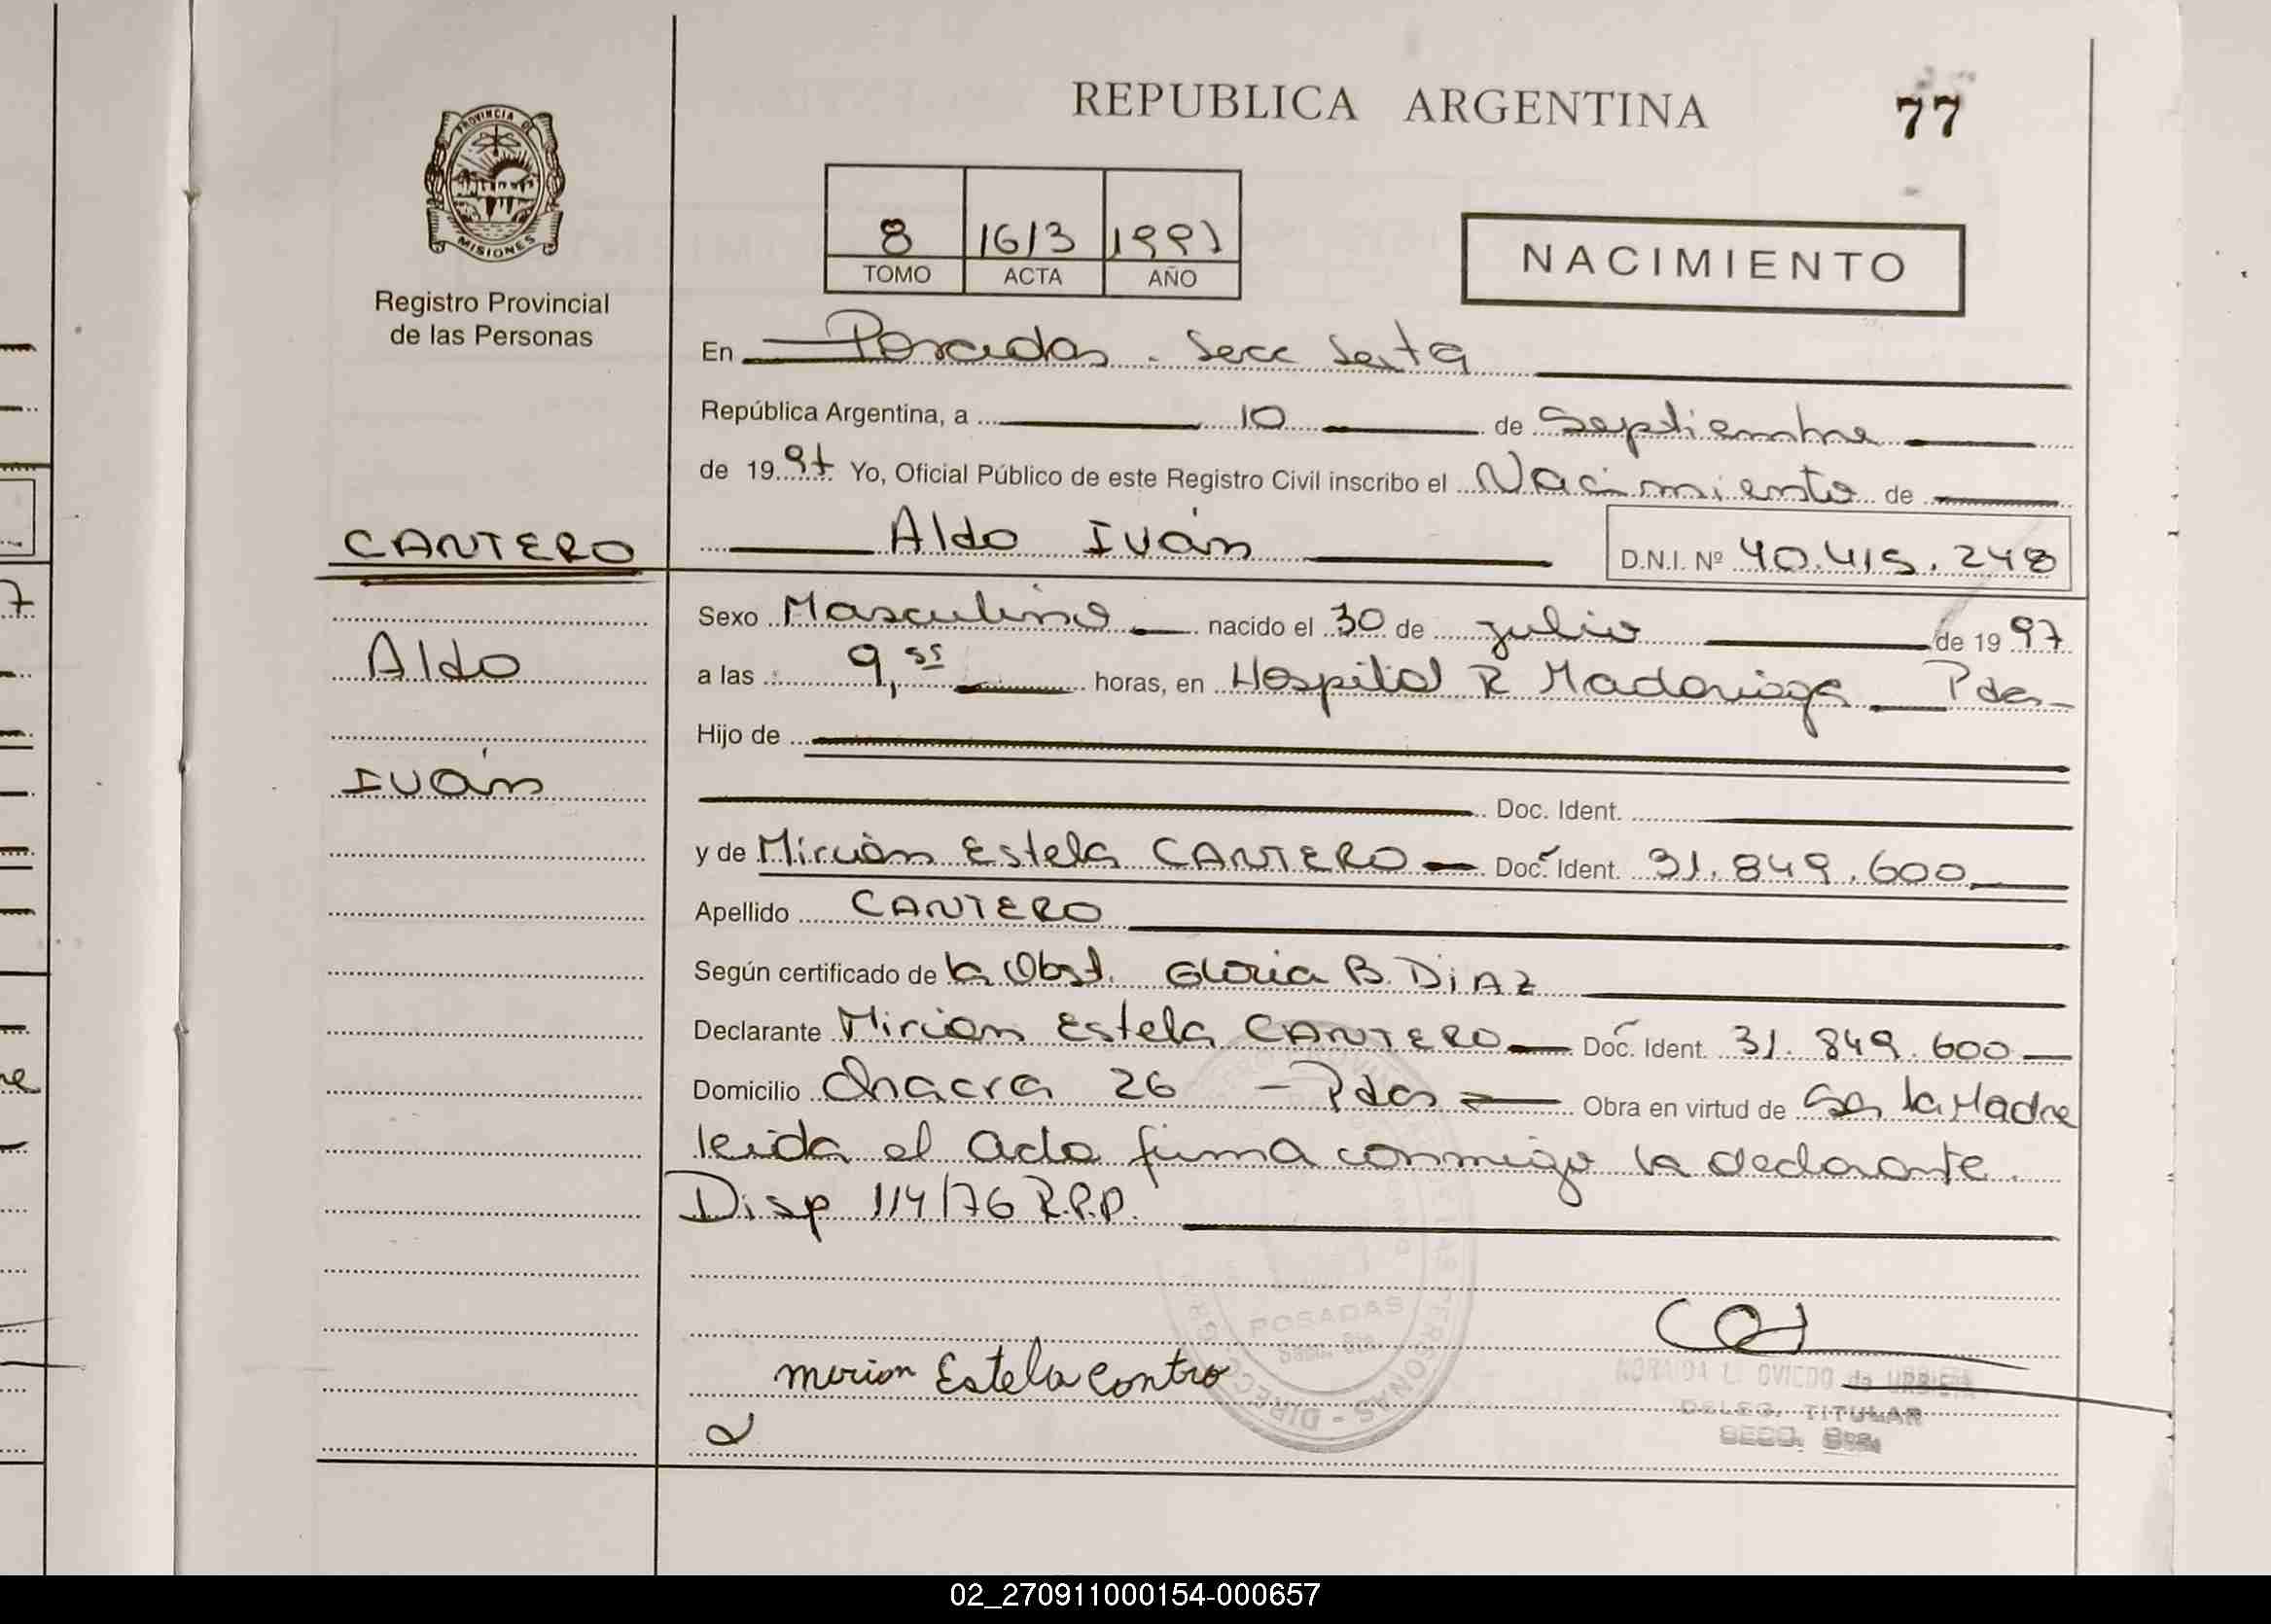 REPUBLICA ARGENTINA
77
PROVINCIA DE
MISIONES
Registro Provincial
de las Personas
8 1613 1997
TOMO ACTA AÑO
NACIMIENTO
En Posadas - Secc Sexta
República Argentina, a 10 de Septiembre
de 1997 Yo, Oficial Público de este Registro Civil inscribo el Nacimiento de
CANTERO
Aldo Iván D.N.I. Nº 40.415.248
Sexo Masculino nacido el 30 de julio de 1997
Aldo
a las 9,55 horas, en Hospital R Madariaga Pdas
Hijo de
Iván
Doc. Ident.
y de Mirian Estela CANTERO Doc. Ident. 31.849.600
Apellido CANTERO
Según certificado de la Obst. Gloria B. DiAZ
Declarante Mirian Estela CANTERO Doc. Ident. 31.849.600
Domicilio Chacra 26 - Pdas Obra en virtud de Ser la Madre
leida el acta firma conmigo la declarante.
Disp 114/76 R.P.P.
POSADAS
mirian Estela Contro
OVIEDO de URBIETA
DELEG. TITULAR
SECC. 6ta.
02_270911000154-000657